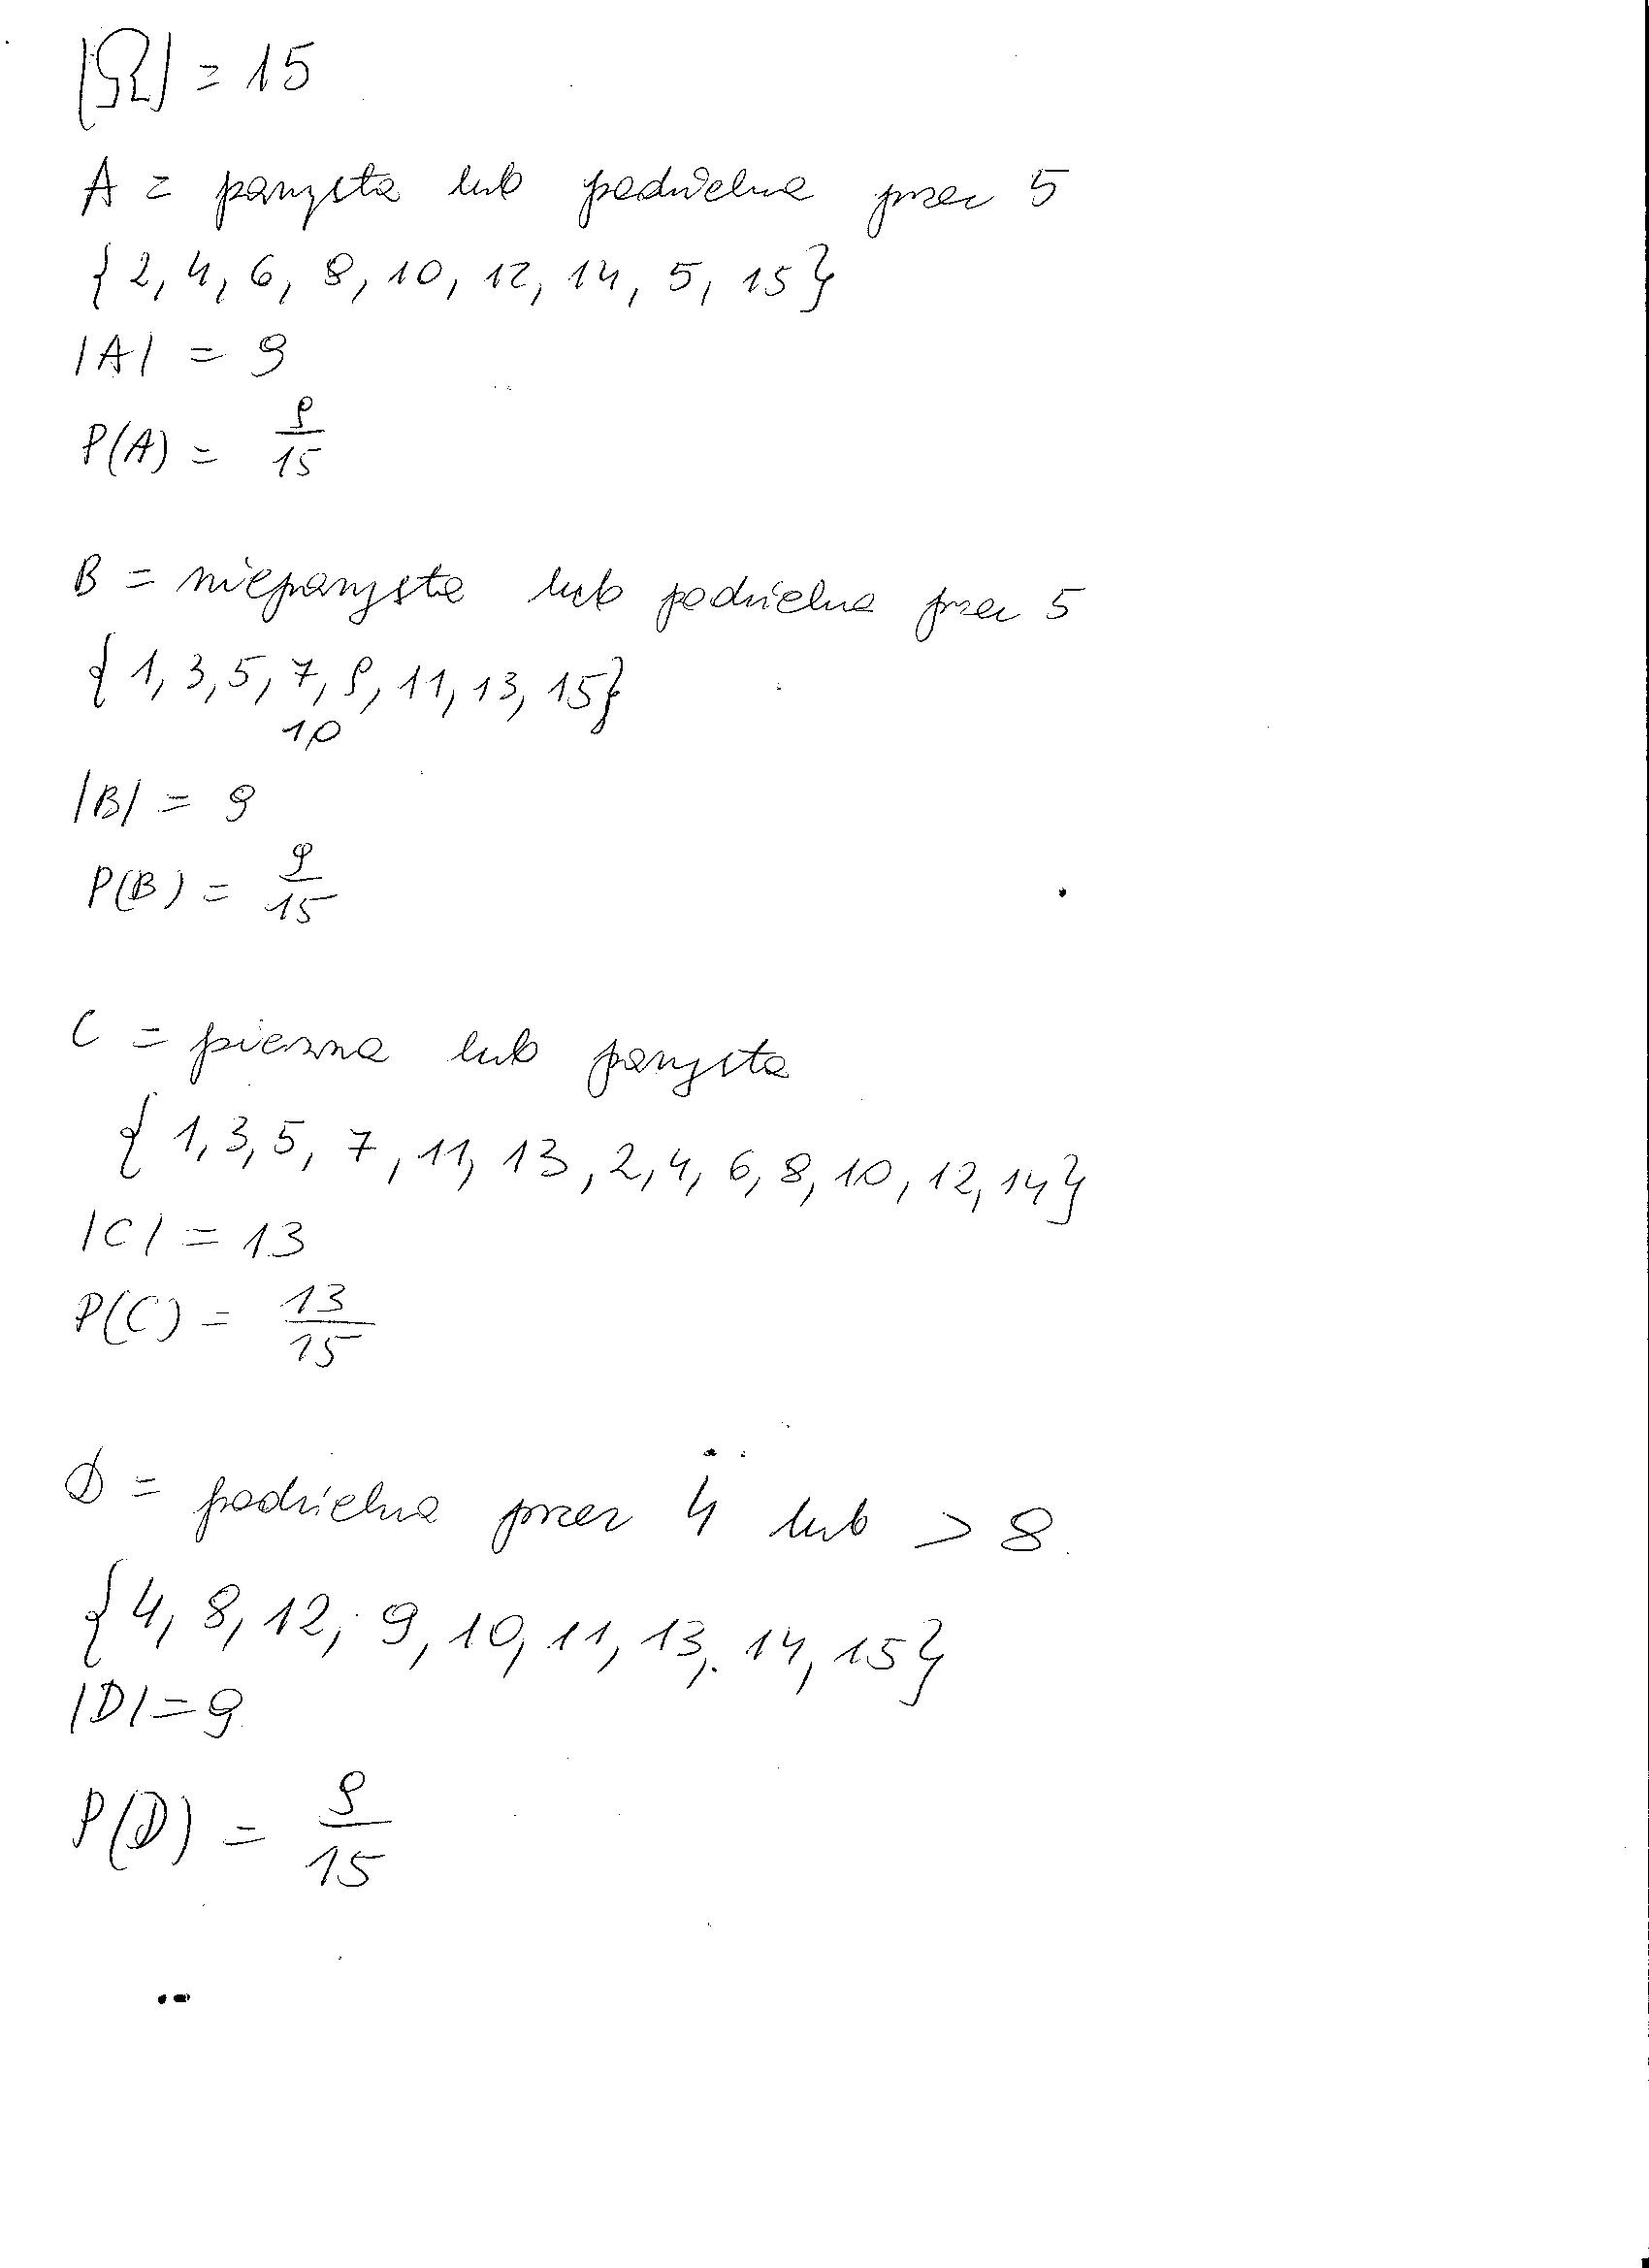 |Ω| = 15
A = parzysta lub podzielna przez 5
{2, 4, 6, 8, 10, 12, 14, 5, 15}
|A| = 9
P(A) = 9/15
B = nieparzysta lub podzielna przez 5
{1, 3, 5, 7, 9, 11, 13, 15}
10,
|B| = 9
P(B) = 9/15
C = pierwsza lub parzysta
{1, 3, 5, 7, 11, 13, 2, 4, 6, 8, 10, 12, 14}
|C| = 13
P(C) = 13/15
D = podzielna przez 4 lub > 8
{4, 8, 12, 9, 10, 11, 13, 14, 15}
|D| = 9
P(D) = 9/15